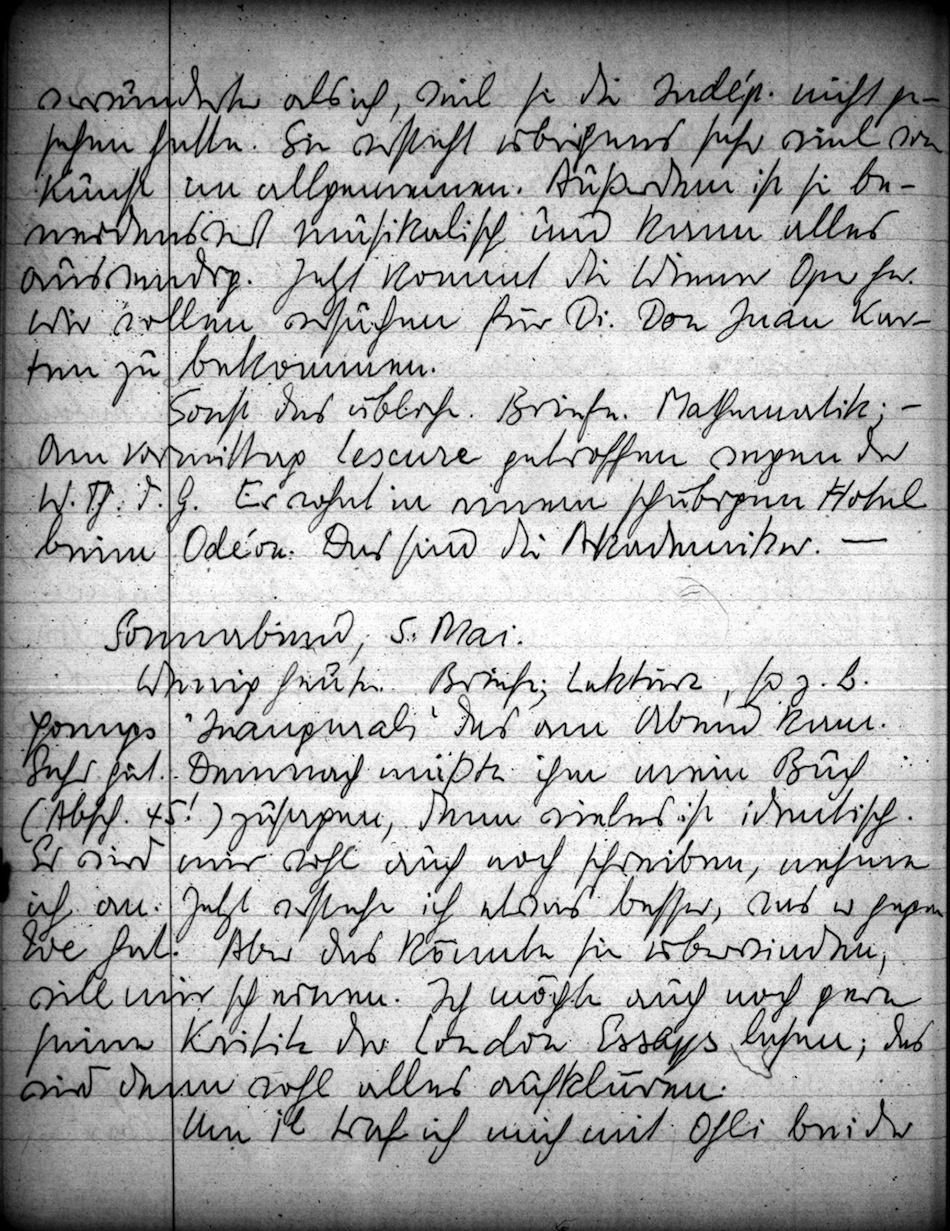 verwunderter als ich, weil sie die Indép. nicht ge-
sehen hatte. Sie versteht übrigens sehr viel von
Kunst im allgemeinen. Außerdem ist sie be-
neidenswert musikalisch und kann alles
auswendig. Jetzt kommt die Wiener Oper her.
Wir wollen versuchen für Di. Don Juan Kar-
ten zu bekommen.
Sonst das übliche. Briefe. Mathematik; –
Am Vormittag Lescure getroffen wegen der
W. Th. d. G. Er wohnt in einem schäbigen Hotel
beim Odéon. Das sind die Akademiker. —
Sonnabend, 5. Mai.
Wenig heute. Briefe; Lektüre, so z. B.
'Inaugural' das am Abend kam.
Sehr gut. Demnach müßte ihm mein Buch
(Absch. 45!) zusagen, denn vieles ist identisch.
Er wird mir wohl auch noch schreiben, nehme
ich an. Jetzt verstehe ich etwas besser, was er gegen
hat. Aber das könnte sie überwinden,
will mir scheinen. Ich möchte auch noch gern
seine Kritik der London Essays lesen; das
wird dann wohl alles aufklären.
Um 12 traf ich mich mit bei der